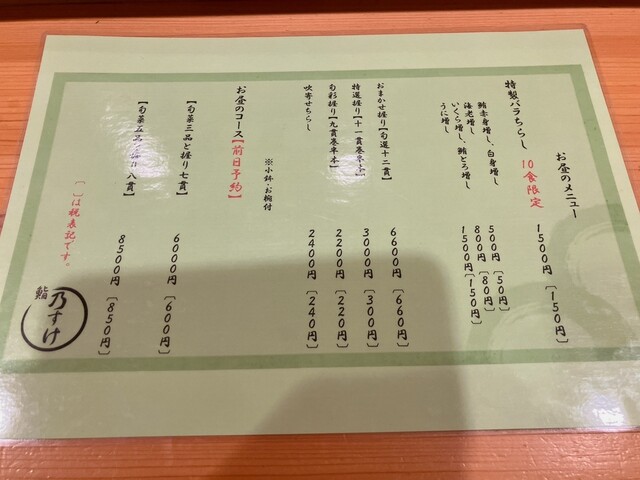 お昼のメニュー
特製バラちらし 10食限定 1500円 〔150円〕
鮪赤身増し、白身増し 500円 〔50円〕
海老増し 800円 〔80円〕
いくら増し、鮪とろ増し
うに増し 1500円 〔150円〕
おまかせ握り【旬選十二貫】 6600円 〔660円〕
特選握り【十一貫巻半本】 3000円 〔300円〕
旬彩握り【九貫巻半本】 2200円 〔220円〕
吹寄せちらし 2400円 〔240円〕
※小鉢・お椀付
お昼のコース【前日予約】
【旬菜三品と握り七貫】 6000円 〔600円〕
【旬菜五品と握り八貫】 8500円 〔850円〕
〔 〕は税表記です。
鮨 乃すけ